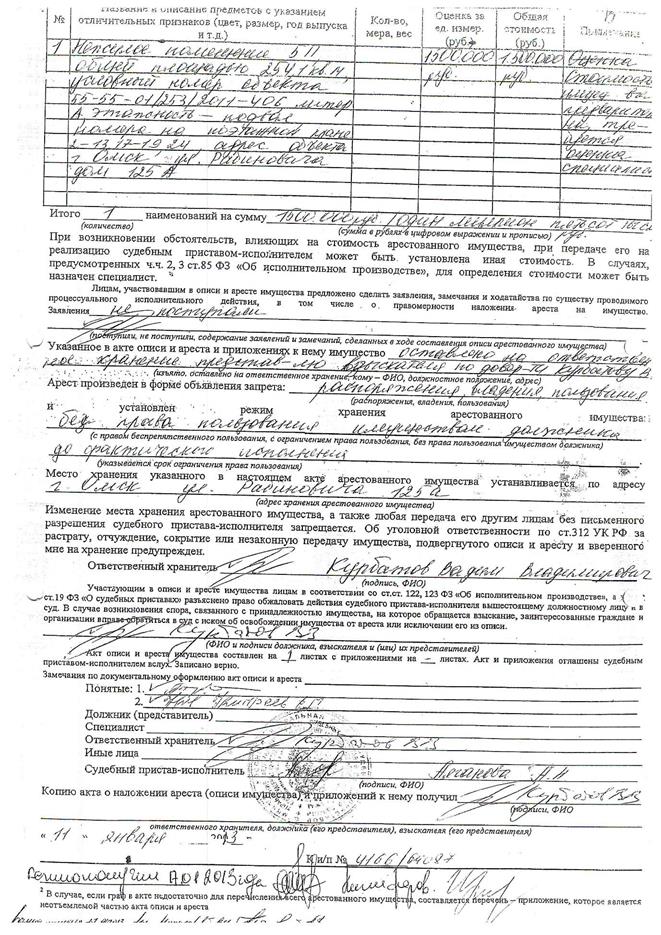 №
Название и описание предметов с указанием отличительных признаков (цвет, размер, год выпуска и т.д.)
Кол-во, мера, вес
Оценка за ед. измер. (руб.)
Общая стоимость (руб.)
Примечание
1 Нежилое помещение 5П 1500.000 1.500.000 Оценка
общей площадью руб руб
условный номер объекта
55-55-01/253/2011-406, литер
А, этажность – подвал
номера на поэтажном плане
2-13,17-19,24 адрес объекта
г. Омск ул. Рабиновича оценка
дом 125 А
Итого 1 наименований на сумму 1500.000 руб. (один миллион пятьсот
(количество) (сумма в рублях в цифровом выражении и прописью) руб.
При возникновении обстоятельств, влияющих на стоимость арестованного имущества, при передаче его на
реализацию судебным приставом-исполнителем может быть установлена иная стоимость. В случаях,
предусмотренных ч.ч. 2, 3 ст.85 ФЗ «Об исполнительном производстве», для определения стоимости может быть
назначен специалист. 2
Лицам, участвовавшим в описи и аресте имущества предложено сделать заявления, замечания и ходатайства по существу проводимого
процессуального исполнительного действия, в том числе о правомерности наложения ареста на имущество.
Заявления не поступали
(поступили, не поступили, содержание заявлений и замечаний, сделанных в ходе составления описи арестованного имущества)
Указанное в акте описи и ареста и приложениях к нему имущество оставлено на ответствен
ное хранение представ-лю взыскателя по довер-ти Курбатову В
(изъято, оставлено на ответственное хранение, кому – ФИО, должностное положение, адрес)
Арест произведен в форме объявления запрета: распоряжения, владения, пользования
(распоряжения, владения, пользования)
и установлен режим хранения арестованного имущества:
без права пользования имуществом должника
(с правом беспрепятственного пользования, с ограничением права пользования, без права пользования имуществом должника)
до фактического исполнения
(указывается срок ограничения права пользования)
Место хранения указанного в настоящем акте арестованного имущества устанавливается по адресу
г. Омск ул. Рабиновича 125 а
(адрес хранения арестованного имущества)
Изменение места хранения арестованного имущества, а также любая передача его другим лицам без письменного
разрешения судебного пристава-исполнителя запрещается. Об уголовной ответственности по ст.312 УК РФ за
растрату, отчуждение, сокрытие или незаконную передачу имущества, подвергнутого описи и аресту и вверенного
мне на хранение предупрежден.
Ответственный хранитель Курбатов Вадим Владимирович
(подпись, ФИО)
Участвующим в описи и аресте имущества лицам в соответствии со ст.ст. 122, 123 ФЗ «Об исполнительном производстве», а
ст.19 ФЗ «О судебных приставах» разъяснено право обжаловать действия судебного пристава-исполнителя вышестоящему должностному лицу и в
суд. В случае возникновения спора, связанного с принадлежностью имущества, на которое обращается взыскание, заинтересованные граждане и
организации вправе обратиться в суд с иском об освобождении имущества от ареста или исключении его из описи.
Курбатов ВВ
(ФИО и подписи должника, взыскателя и (или) их представителей)
Акт описи и ареста имущества составлен на 1 листах с приложениями на – листах. Акт и приложения оглашены судебным
приставом-исполнителем вслух. Записано верно.
Замечания по документальному оформлению акт описи и ареста
Понятые: 1.
2.
Должник (представитель)
Специалист
Ответственный хранитель Курбатов ВВ
Иные лица
Судебный пристав-исполнитель
(подписи, ФИО)
Копию акта о наложении ареста (описи имущества) и приложений к нему получил Курбатов ВВ
(подписи, ФИО)
ответственного хранителя, должника (его представителя), взыскателя (его представителя)
" 11 " января 2013
К и/п № 4166/
2013 года
2 В случае, если граф в акте недостаточно для перечисления всего арестованного имущества, составляется перечень – приложение, которое является
неотъемлемой частью акта описи и ареста